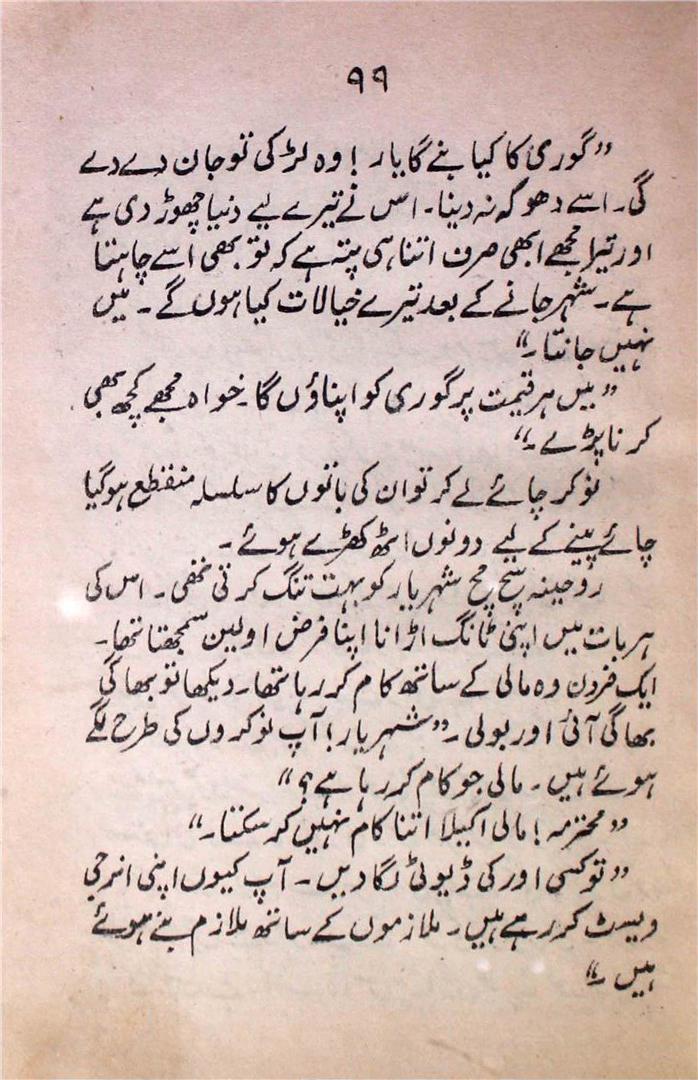 ۹۹
”گوری کا کیا بنے گا یار! وہ لڑکی تو جان دے دے
گی۔ اسے دھوکہ نہ دینا۔ اس نے تیرے لیے دنیا چھوڑ دی ہے
اور تیرا مجھے ابھی صرف اتنا ہی پتہ ہے کہ تو بھی اسے چاہتا
ہے۔ شہر جانے کے بعد تیرے خیالات کیا ہوں گے۔ میں
نہیں جانتا۔“
”میں ہر قیمت پر گوری کو اپناؤں گا۔ خواہ مجھے کچھ بھی
کرنا پڑے۔“
نوکر چائے لے کر تو ان کی باتوں کا سلسلہ منقطع ہو گیا
چائے پینے کے لیے دونوں اٹھ کھڑے ہوئے۔
روحینہ سچ مچ شہریار کو بہت تنگ کرتی تھی۔ اس کی
ہر بات میں اپنی ٹانگ اڑانا اپنا فرض اولین سمجھتا تھا۔
ایک دن وہ مالی کے ساتھ کام کر رہا تھا۔ دیکھا تو بھاگی
بھاگی آئی اور بولی۔ ”شہریار! آپ نوکروں کی طرح لگے
ہوئے ہیں۔ مالی جو کام کر رہا ہے؟“
”محترمہ! مالی اکیلا اتنا کام نہیں کر سکتا۔“
”تو کسی اور کی ڈیوٹی لگا دیں۔ آپ کیوں اپنی انرجی
ویسٹ کر رہے ہیں۔ ملازموں کے ساتھ ملازم بنے ہوئے
ہیں۔“